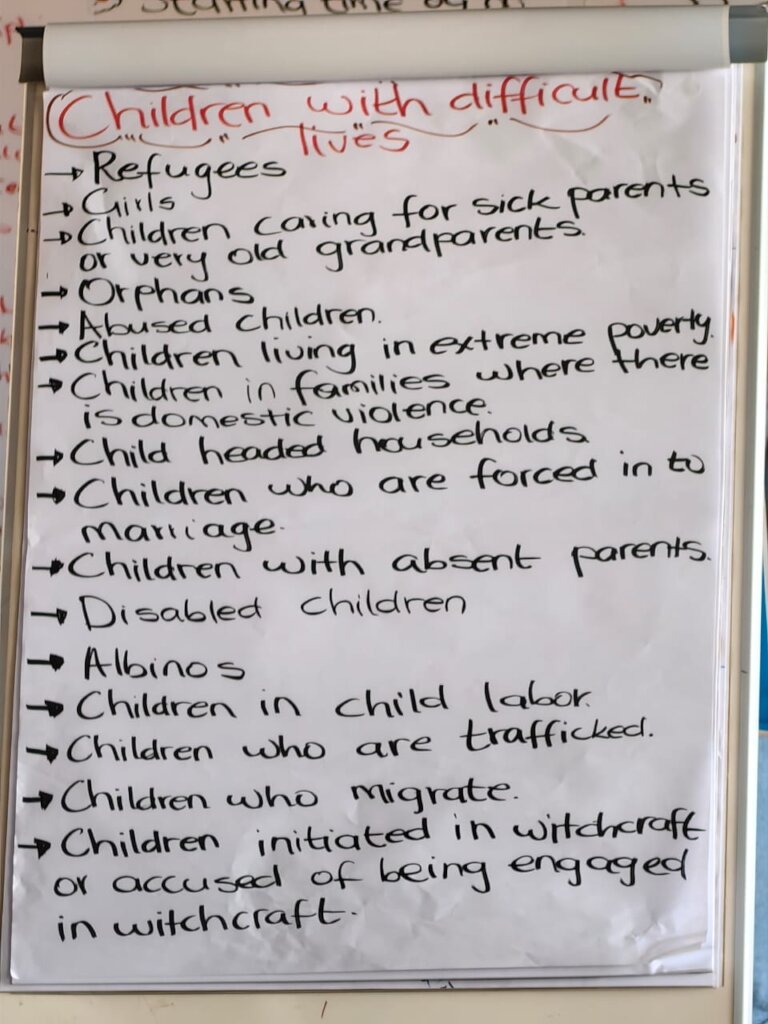 Starting time
Children with difficult
lives
→ Refugees
→ Girls
→ Children caring for sick parents
or very old grandparents.
→ Orphans
→ Abused children.
→ Children living in extreme poverty.
→ Children in families where there
is domestic violence.
→ Child headed households
→ Children who are forced in to
marriage.
→ Children with absent parents.
→ Disabled children
→ Albinos
→ Children in child labor.
→ Children who are trafficked.
→ Children who migrate.
→ Children initiated in witchcraft
or accused of being engaged
in witchcraft.